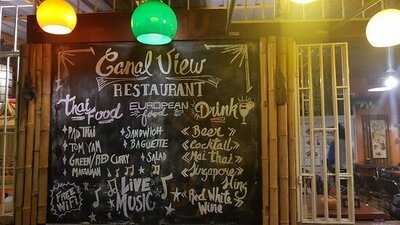 Canal View
RESTAURANT
Thai Food
PAD THAI
TOM YAM
GREEN/RED CURRY
MASSAMAN
EUROPEAN food
SANDWICH
BAGUETTE
SALAD
Drink
Beer
Cocktail
Mai Thai
Singapore
Sling
Red White
Wine
LIVE
MUSIC
FREE
WiFi